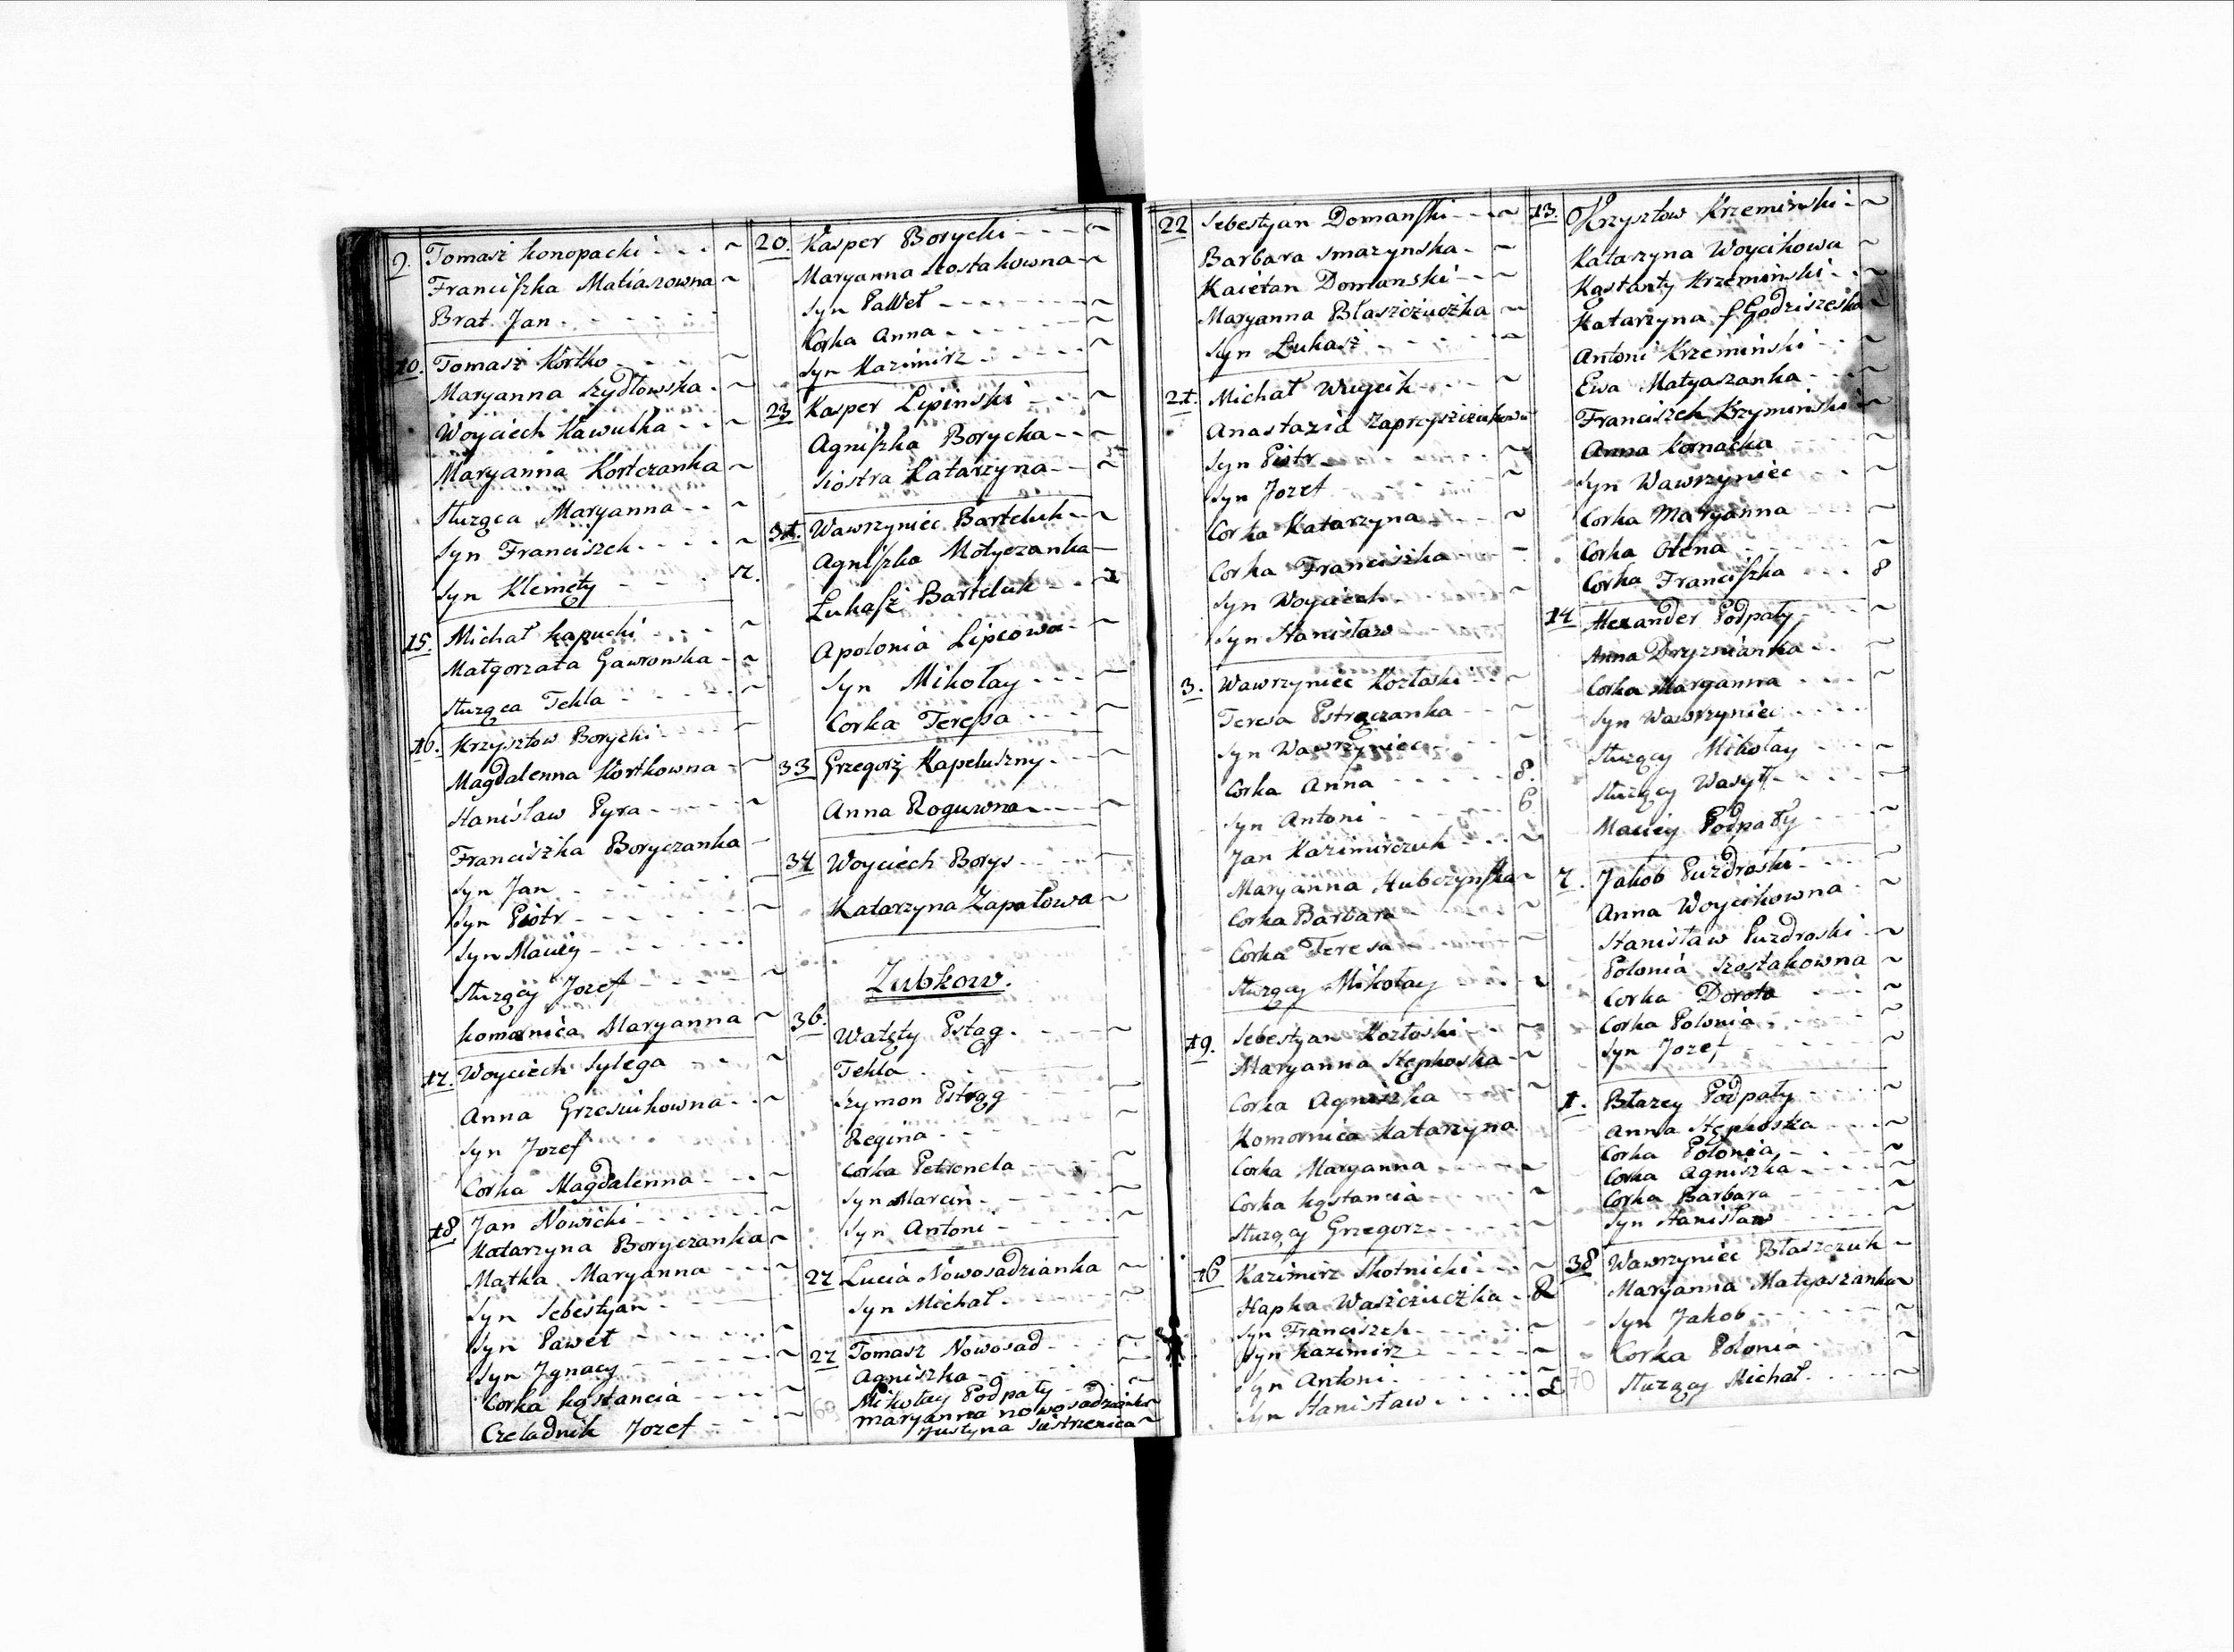 9. Tomasz Konopacki
Franciszka Matiaszowna
Brat Jan
10. Tomasz Kortko
Maryanna Szydłowska
Woyciech Kawulka
Maryanna Kortczanka
Służąca Maryanna
Syn Franciszek
Syn Klemęty 12.
15. Michał Kapucki
Małgorzata Gawronska
Służąca Tekla
16. Krzysztow Borycki
Magdalenna Kortkowna
Stanisław Pyra
Franciszka Boryczanka
Syn Jan
Syn Piotr
Syn Maciey
Służący Jozef
Komornica Maryanna
17. Woyciech Sylega
Anna Grzesiukowna
Syn Jozef
Corka Magdalenna
18. Jan Nowicki
Katarzyna Boryczanka
Matka Maryanna
Syn Sebestyan
Syn Paweł
Syn Jgnacy
Corka Kąstancia
Czeladnik Jozef
20. Kasper Borycki
Maryanna Szostakowna
Syn Paweł
Corka Anna
Syn Kazimirz
23 Kasper Lipinski
Agniszka Borycka
Siostra Katarzyna
31. Wawrzyniec Barteluk
Agniszka Motyczanka
Łukasz Barteluk
Apolonia Lipcowa
Syn Mikołay
Corka Teressa
33 Grzegorz Kapeluszny
Anna Roguwna
34 Woyciech Borys
Katarzyna Zapałowa
Zubkow.
36. Walęty Pstąg
Tekla
Szymon Pstrąg
Regina
Corka Petronela
Syn Marcin
Syn Antoni
27 Lucia Nowosadzianka
Syn Michał
27 Tomasz Nowosad
Agniszka
69 Mikołay Podpały
Maryanna Nowosadzianka
Justyna Siestrzenica
22 Sebestyan Domanski
Barbara Smazynska
Kaietan Domanski
Maryanna Błaszczuczka
Syn Łukasz
21. Michał Wuycik
Anastazia
Syn Piotr
Syn Jozef
Corka Katarzyna
Corka Franciszka
Syn Woyciech
Syn Stanisław
3. Wawrzyniec Kozłoski
Teresa Pstrączanka
Syn Wawrzyniec
Corka Anna 8.
Syn Antoni 6
Jan Kazimirczuk
Maryanna Hubczynska
Corka Barbara
Corka Teresa
Służący Mikołay
19. Sebestyan Kozłoski
Maryanna Stępkoska
Corka Agniszka
Komornica Katarzyna
Corka Maryanna
Corka Kąstancia
Służący Grzegorz
16 Kazimirz Skotnicki
Hapka Waszczuczka
Syn Franciszek
Syn Kazimirz
Syn Antoni
Syn Stanisław
13. Krzysztow Krzeminski
Katarzyna Woycikowa
Kąstanty Krzeminski
Katarzyna Godziszeska
Antoni Krzeminski
Ewa Matyaszanka
Franciszek Krzyminski
Anna Kornacka
Syn Wawrzyniec
Corka Maryanna
Corka Olena
Corka Franciszka 8
14 Alexander Podpały
Anna Dryznianka
Corka Maryanna
Syn Wawrzyniec
Służący Mikołay
Służący Wasyl
Maciey Podpały
7. Jakob Puzdroski
Anna Woycikowna
Stanisław Puzdroski
Polonia Szostakowna
Corka Dorota
Corka Polonia
Syn Jozef
1. Błazey Podpały
Anna Stępkoska
Corka Polonia
Corka Agniszka
Corka Barbara
Syn Stanisław
38 Wawrzyniec Błaszczuk
Maryanna Matyaszanka
Syn Jakob
Corka Polonia
70 Służący Michał